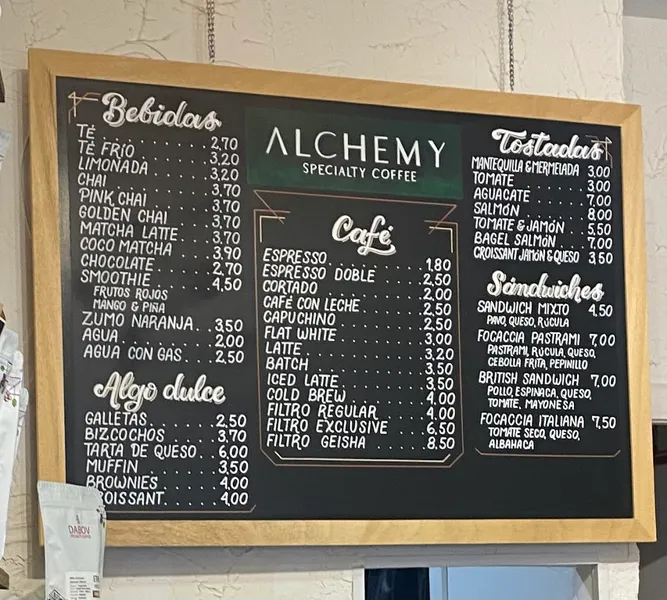 Bebidas
TÉ . . . . . . . 2,70
TÉ FRÍO . . . . . . . 3,20
LIMONADA . . . . . . 3,20
CHAI . . . . . . . 3,70
PINK CHAI . . . . . . 3,70
GOLDEN CHAI . . . . 3,70
MATCHA LATTE . . . . 3,70
COCO MATCHA . . . . 3,90
CHOCOLATE . . . . . 2,70
SMOOTHIE . . . . . 4,50
FRUTOS ROJOS
MANGO & PIÑA
ZUMO NARANJA . . 3,50
AGUA . . . . . . . 2,00
AGUA CON GAS . . . 2,50
Algo dulce
GALLETAS . . . . . . 2,50
BIZCOCHOS . . . . . 3,70
TARTA DE QUESO . . 6,00
MUFFIN . . . . . . . 3,50
BROWNIES . . . . . . 4,00
CROISSANT . . . . . 4,00
ALCHEMY
SPECIALTY COFFEE
Café
ESPRESSO . . . . . . . . 1,80
ESPRESSO DOBLE . . . . . 2,50
CORTADO . . . . . . . . 2,00
CAFÉ CON LECHE . . . . . 2,50
CAPUCHINO . . . . . . . 2,50
FLAT WHITE . . . . . . . 3,00
LATTE . . . . . . . . . 3,20
BATCH . . . . . . . . . 3,50
ICED LATTE . . . . . . . 3,50
COLD BREW . . . . . . . 4,00
FILTRO REGULAR . . . . . 4,00
FILTRO EXCLUSIVE . . . . 6,50
FILTRO GEISHA . . . . . 8,50
Tostadas
MANTEQUILLA & MERMELADA 3,00
TOMATE . . . . . . 3,00
AGUACATE . . . . . 7,00
SALMÓN . . . . . . 8,00
TOMATE & JAMÓN . . 5,50
BAGEL SALMÓN . . . 7,00
CROISSANT JAMÓN & QUESO 3,50
Sándwiches
SANDWICH MIXTO 4,50
PAVO, QUESO, RÚCULA
FOCACCIA PASTRAMI 7,00
PASTRAMI, RÚCULA, QUESO,
CEBOLLA FRITA, PEPINILLO
BRITISH SANDWICH 7,00
POLLO, ESPINACA, QUESO,
TOMATE, MAYONESA
FOCACCIA ITALIANA 7,50
TOMATE SECO, QUESO,
ALBAHACA
DABOV